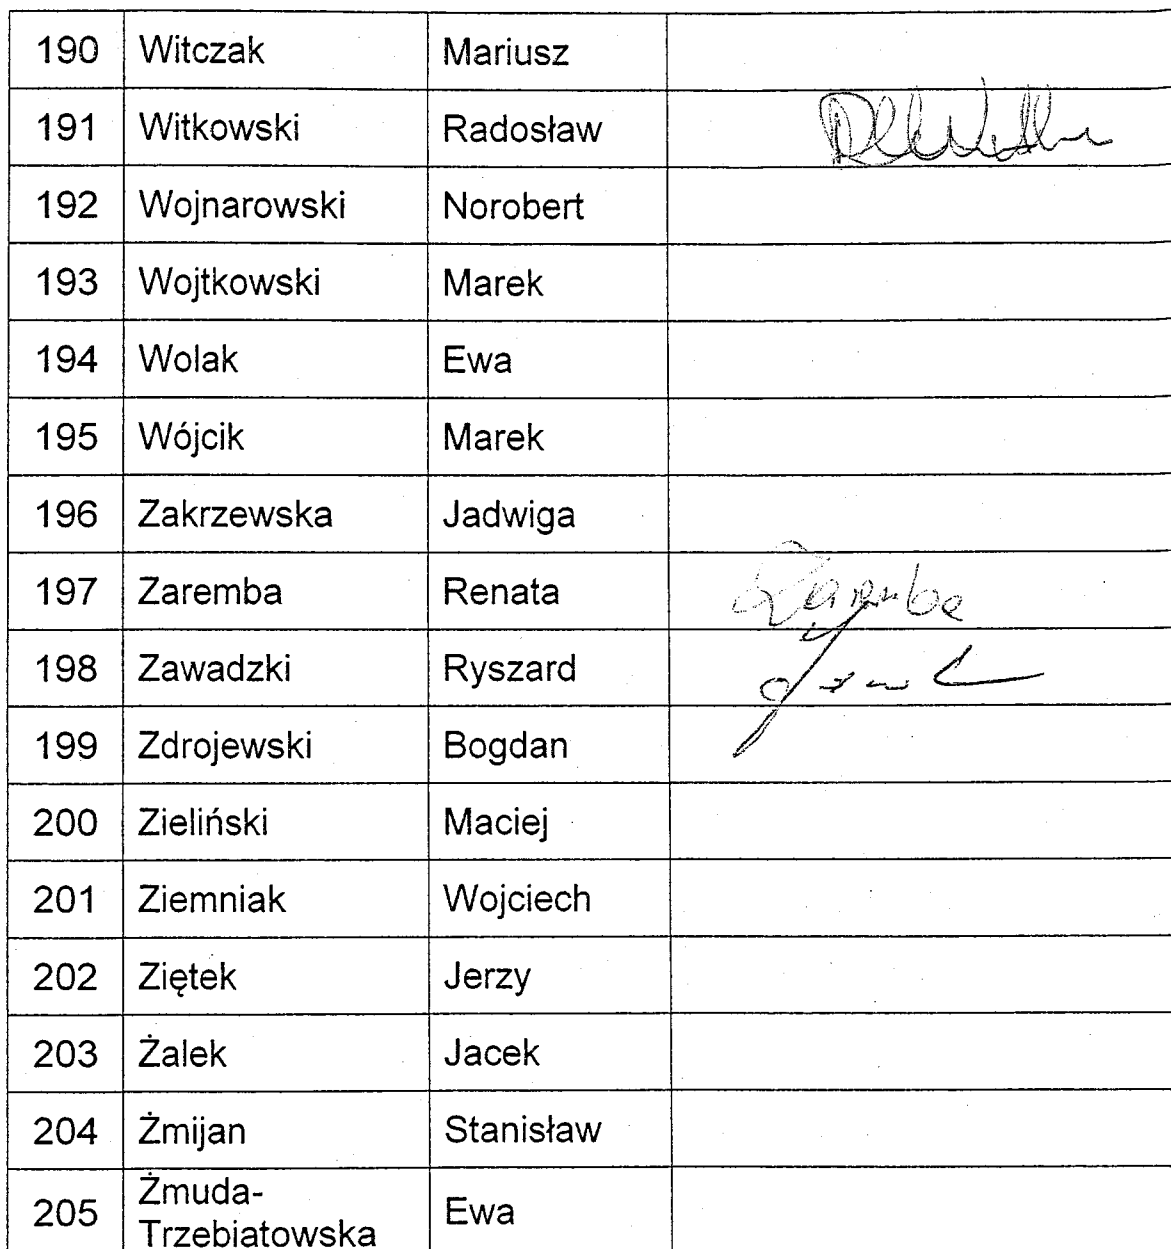 190 Witczak Mariusz
191 Witkowski Radosław
192 Wojnarowski Norobert
193 Wojtkowski Marek
194 Wolak Ewa
195 Wójcik Marek
196 Zakrzewska Jadwiga
197 Zaremba Renata Zaremba
198 Zawadzki Ryszard
199 Zdrojewski Bogdan
200 Zieliński Maciej
201 Ziemniak Wojciech
202 Ziętek Jerzy
203 Żalek Jacek
204 Żmijan Stanisław
205 Żmuda-
Trzebiatowska Ewa